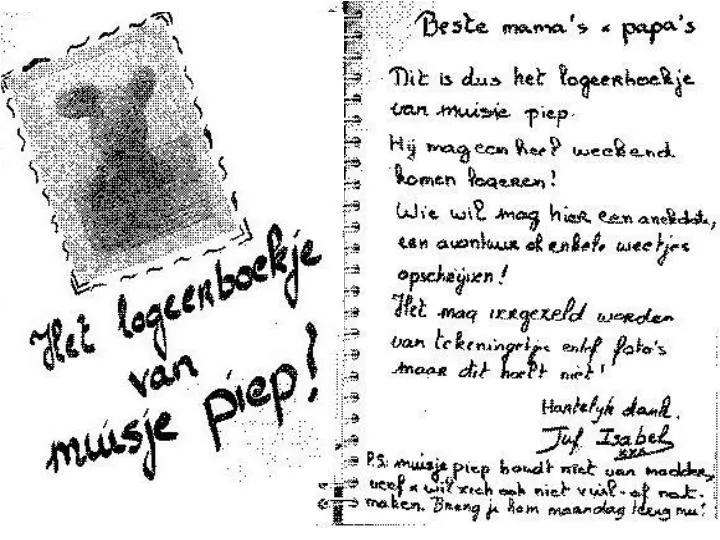 Het logeerboekje
van
muisje piep!
Beste mama's & papa's
Dit is dus het logeerboekje
van muisje piep.
Hij mag een heel weekend
komen logeren!
Wie wil mag hier een anekdote,
een avontuur of enkele weetjes
opschrijven!
Het mag vergezeld worden
van tekeningetje en/of foto's
maar dit hoeft niet!
Hartelijk dank.
Juf Isabel
xxx
P.S: muisje piep houdt niet van modder,
verf & wil zich ook niet vuil- of nat-
maken. Breng je hem maandag terug mee!